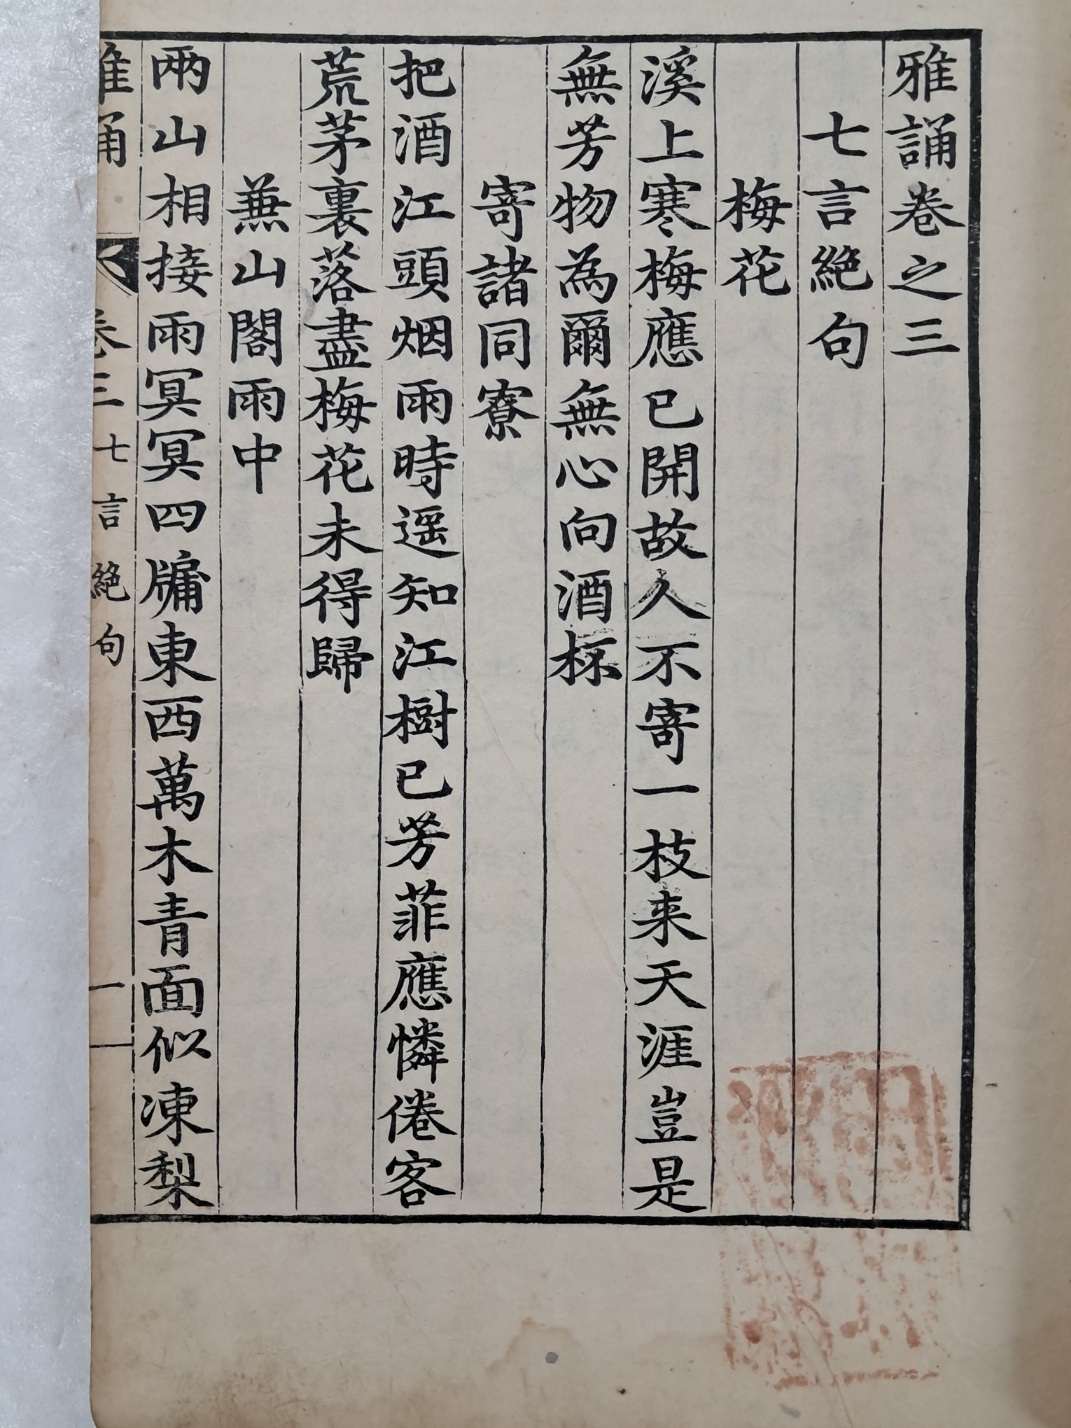 雅誦卷之三
七言絕句
梅花
溪上寒梅應已開故人不寄一枝来天涯豈是
無芳物為爾無心向酒杯
寄諸同寮
把酒江頭烟雨時遥知江樹已芳菲應憐倦客
荒茅裏落盡梅花未得歸
蕪山閣雨中
兩山相接雨冥冥四牖東西萬木青面似凍梨
雅誦 卷三 七言絕句 一